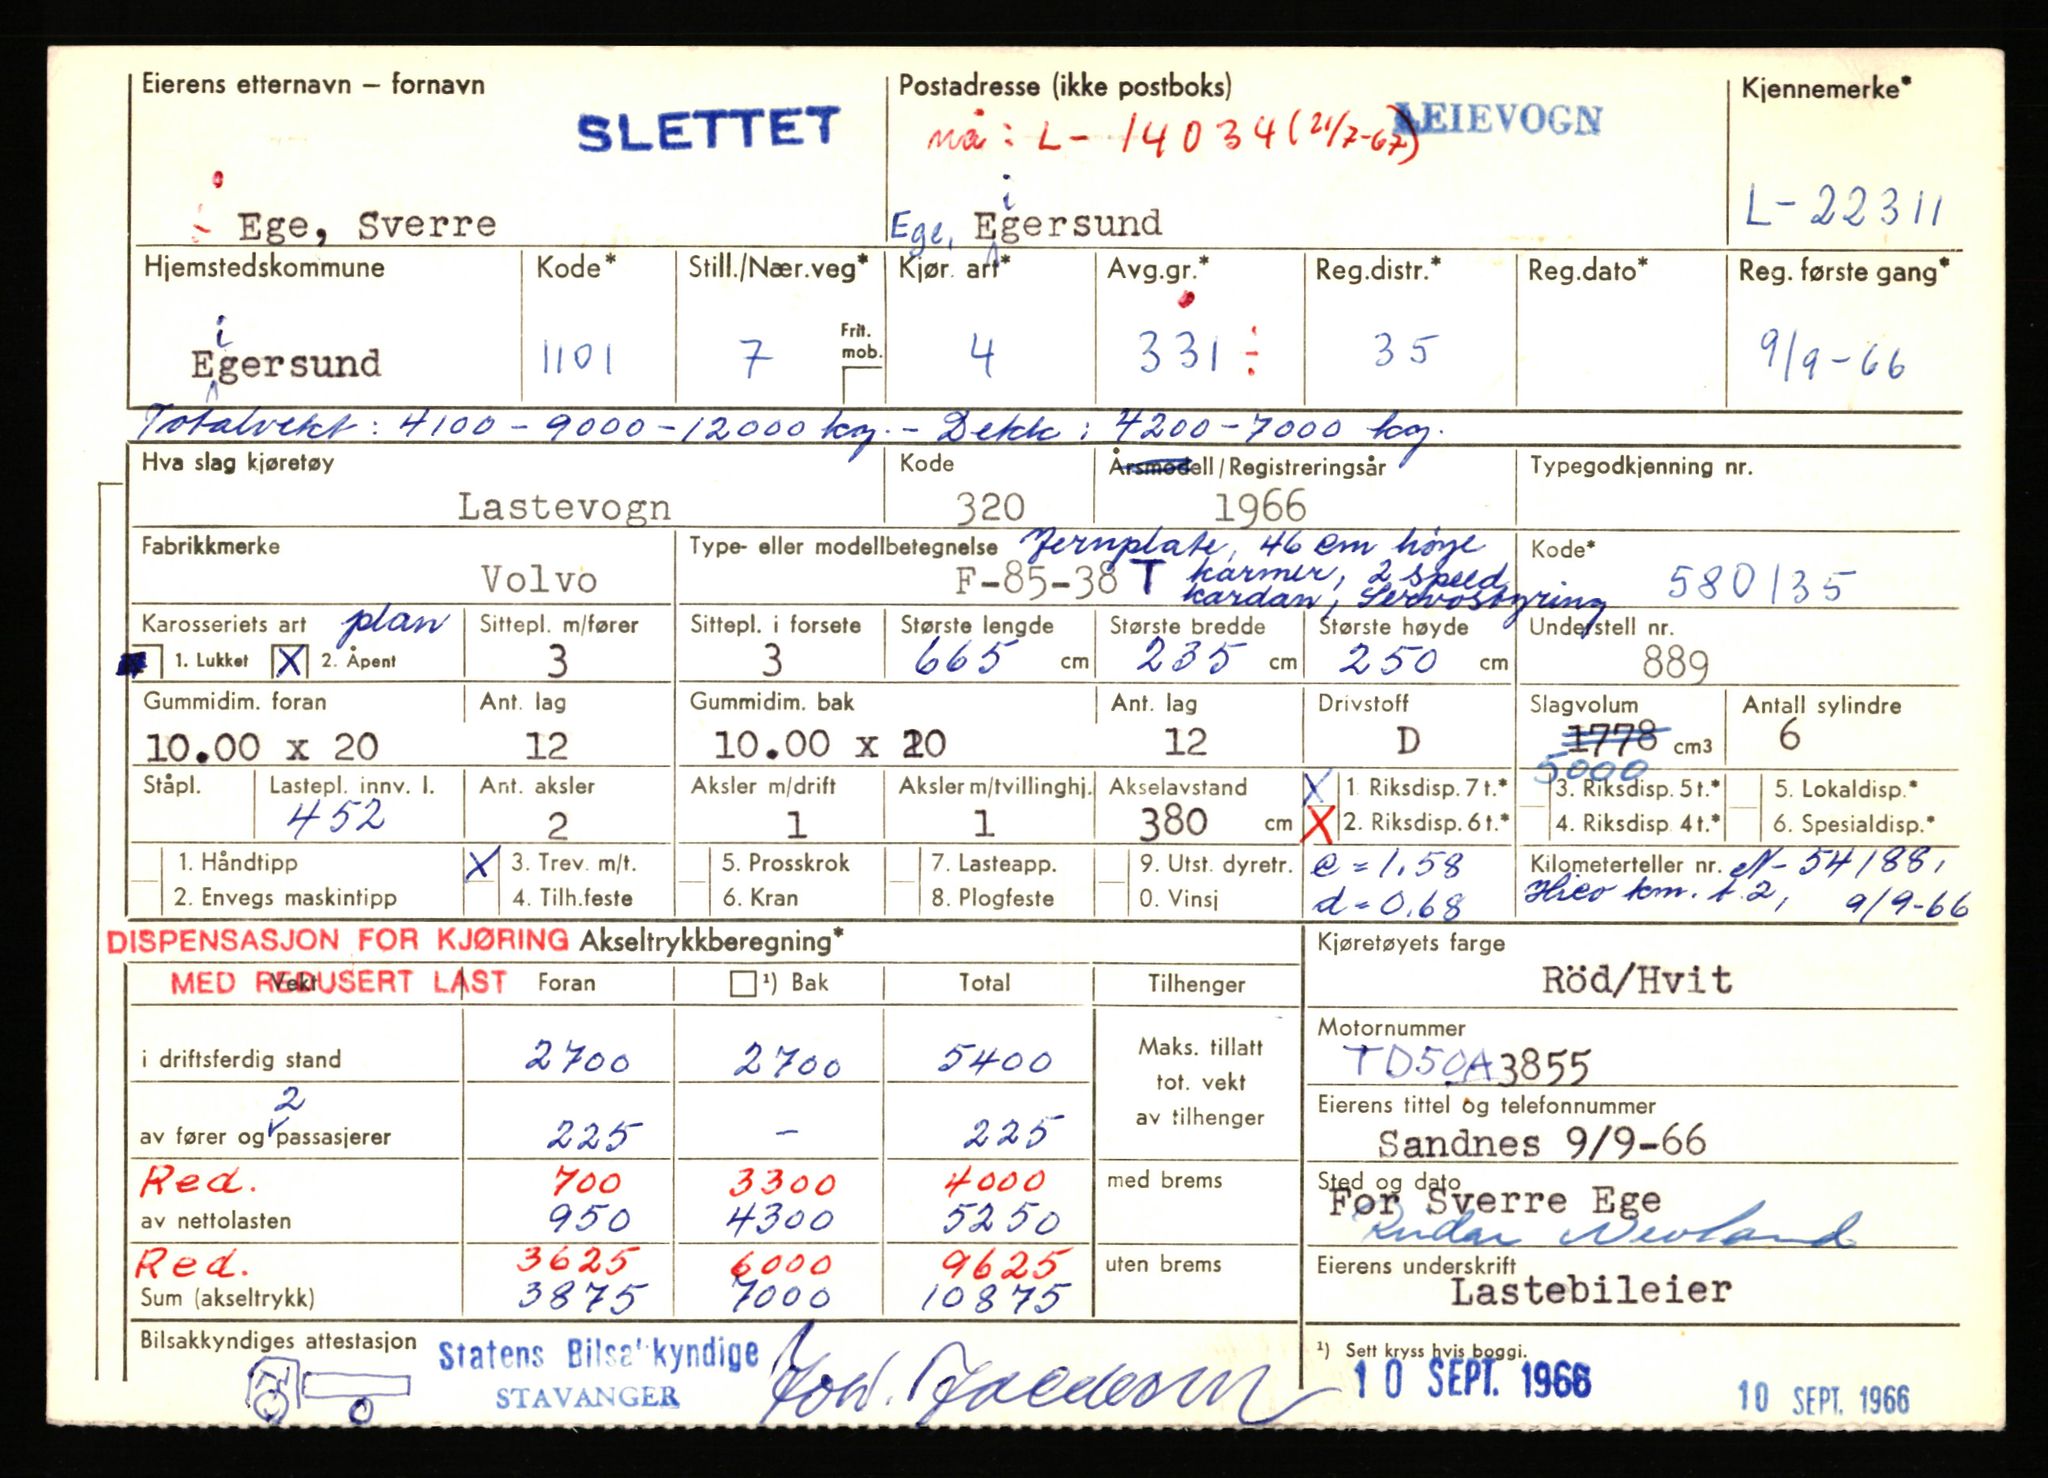 Eierens etternavn – fornavn
SLETTET
Ege, Sverre
Postadresse (ikke postboks)
LEIEVOGN
nå: L- 14034 (21/7-67)
Ege, i Egersund
Kjennemerke*
L-22311
Hjemstedskommune
i
Egersund
Kode*
1101
Still./Nær.veg*
7
Frit. mob.
Kjør. art*
4
Avg.gr.*
331
Reg.distr.*
35
Reg.dato*
Reg. første gang*
9/9-66
Totalvekt: 4100 - 9000 - 12000 kg. - Dekk: 4200 - 7000 kg.
Hva slag kjøretøy
Lastevogn
Kode
320
Årsmodell/Registreringsår
1966
Typegodkjenning nr.
Fabrikkmerke
Volvo
Type- eller modellbetegnelse
F-85-38 T
Jernplate, 46 cm høye
karmer, 2 speed
kardan, Servostyring
Kode*
580135
Karosseriets art plan
1. Lukket X 2. Åpent
Sittepl. m/fører
3
Sittepl. i forsete
3
Største lengde
665 cm
Største bredde
235 cm
Største høyde
250 cm
Understell nr.
889
Gummidim. foran
10.00 x 20
Ant. lag
12
Gummidim. bak
10.00 x 20
Ant. lag
12
Drivstoff
D
Slagvolum
1778 cm3
5000
Antall sylindre
6
Ståpl.
Lastepl. innv. l.
452
Ant. aksler
2
Aksler m/drift
1
Aksler m/tvillinghj.
1
Akselavstand
380 cm
X 1. Riksdisp. 7 t.*
X 2. Riksdisp. 6 t.*
3. Riksdisp. 5 t.*
4. Riksdisp. 4 t.*
5. Lokaldisp.*
6. Spesialdisp.*
1. Håndtipp
2. Envegs maskintipp
X 3. Trev. m/t.
4. Tilh.feste
5. Prosskrok
6. Kran
7. Lasteapp.
8. Plogfeste
9. Utst. dyretr.
0. Vinsj
e = 1.58
d = 0.68
Kilometerteller nr. N-54188,
Hico km. t. 2, 9/9-66
DISPENSASJON FOR KJØRING
MED REDUSERT LAST
Akseltrykkberegning*
Vekt Foran ¹) Bak Total Tilhenger
i driftsferdig stand 2700 2700 5400
2
av fører og passasjerer 225 - 225
Maks. tillatt
tot. vekt
av tilhenger
Red. 700 3300 4000
av nettolasten 950 4300 5250
med brems
Red. 3625 6000 9625
Sum (akseltrykk) 3875 7000 10875
uten brems
Kjøretøyets farge
Röd/Hvit
Motornummer
TD50A3855
Eierens tittel og telefonnummer
Sandnes 9/9-66
Sted og dato
For Sverre Ege
Eierens underskrift
Lastebileier
Bilsakkyndiges attestasjon
Statens Bilsakkyndige
STAVANGER
¹) Sett kryss hvis boggi.
10 SEPT. 1966
10 SEPT. 1966